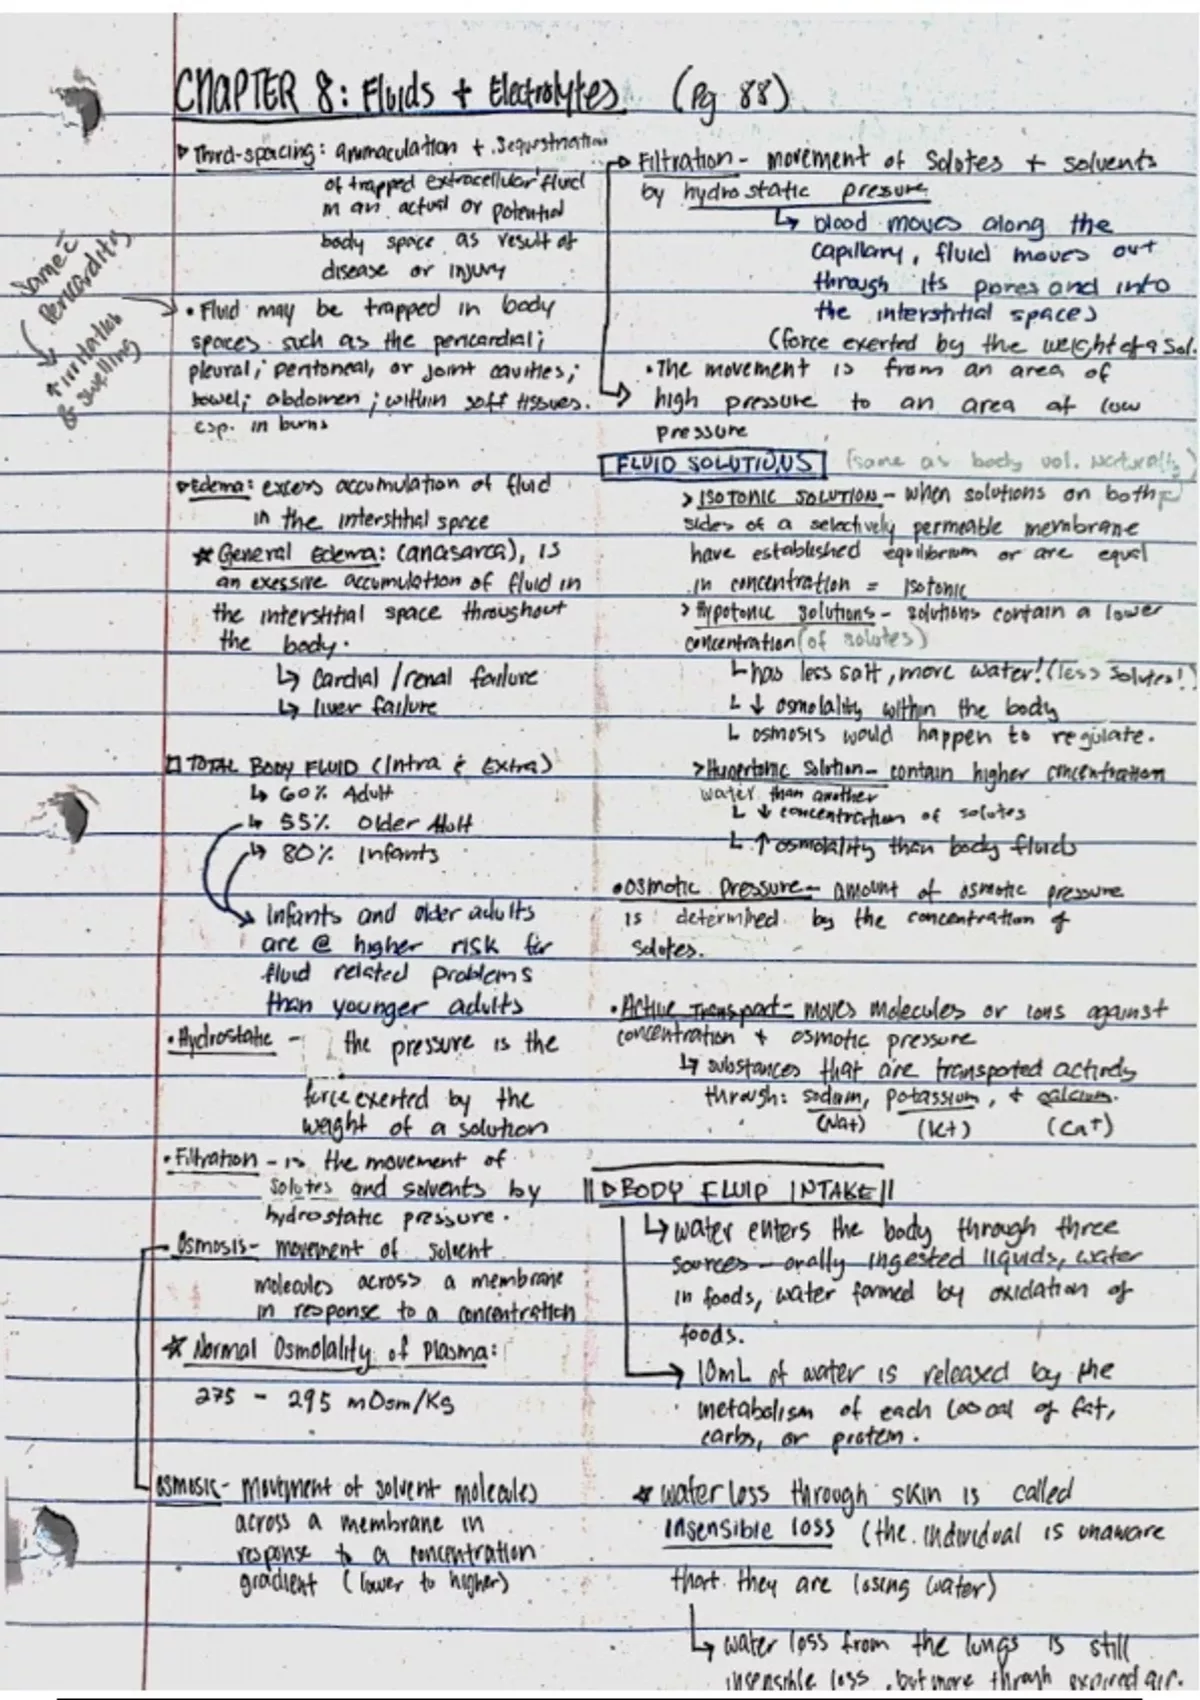 CHAPTER 8: Fluids + Electrolytes (Pg 88)
▷ Third-spacing: ammaculation + sequestration
of trapped extracellular fluid
in an actual or potential
body space as result of
disease or injury
Same c̄
Pericarditis
↑ irritation
& swelling
• Fluid may be trapped in body
spaces such as the pericardial;
pleural; peritoneal, or joint cavities;
bowel; abdomen; within soft tissues.
esp. in burns
▷ Edema: excess accumulation of fluid
in the interstitial space
★ General Edema: (anasarca), is
an exessive accumulation of fluid in
the interstitial space throughout
the body.
↳ Cardial / renal failure
↳ liver failure
□ TOTAL BODY FLUID (Intra & Extra)
↳ 60% Adult
↳ 55% Older Adult
↳ 80% Infants
Infants and older adults
are @ higher risk for
fluid related problems
than younger adults
• Hydrostatic - the pressure is the
force exerted by the
weight of a solution
• Filtration - is the movement of
solutes and solvents by
hydrostatic pressure.
Osmosis - movement of solvent
molecules across a membrane
in response to a concentration
★ Normal Osmolality of Plasma:
275 - 295 mOsm/Kg
Osmosis - movement of solvent molecules
across a membrane in
response to a concentration
gradient (lower to higher)
▷ Filtration - movement of Solotes + solvents
by hydrostatic pressure
↳ blood moves along the
capillary, fluid moves out
through its pores and into
the interstitial space)
(force exerted by the weight of a Sol.
• The movement is from an area of
high pressure to an area of low
pressure
FLUID SOLUTIONS (same as body vol. Naturally)
> ISOTONIC SOLUTION - when solutions on both
sides of a selectively permeable membrane
have established equilibrium or are equal
in concentration = Isotonic
> Hypotonic Solutions - solutions contain a lower
concentration (of solutes)
↳ has less salt, more water! (less Solutes!)
↳ ↓ osmolality within the body
↳ osmosis would happen to regulate.
> Hypertonic Solution - contain higher concentration
water than another
↳ ↓ concentration of solutes
↳ ↑ osmolality than body fluids
• Osmotic Pressure - amount of osmotic pressure
is determined by the concentration of
Solotes.
• Active Transport - moves molecules or ions against
concentration + osmotic pressure
↳ substances that are transported actively
through: sodium, potassium, + calcium.
(Na+) (K+) (Ca+)
|| ▷ BODY FLUID INTAKE ||
↳ water enters the body through three
sources - orally ingested liquids, water
in foods, water formed by oxidation of
foods.
→ 10mL of water is released by the
metabolism of each 100 cal of fat,
carbs, or protein.
★ water loss through skin is called
insensible loss (the individual is unaware
that they are losing water)
↳ water loss from the lungs is still
insensible loss, but more through expired air.